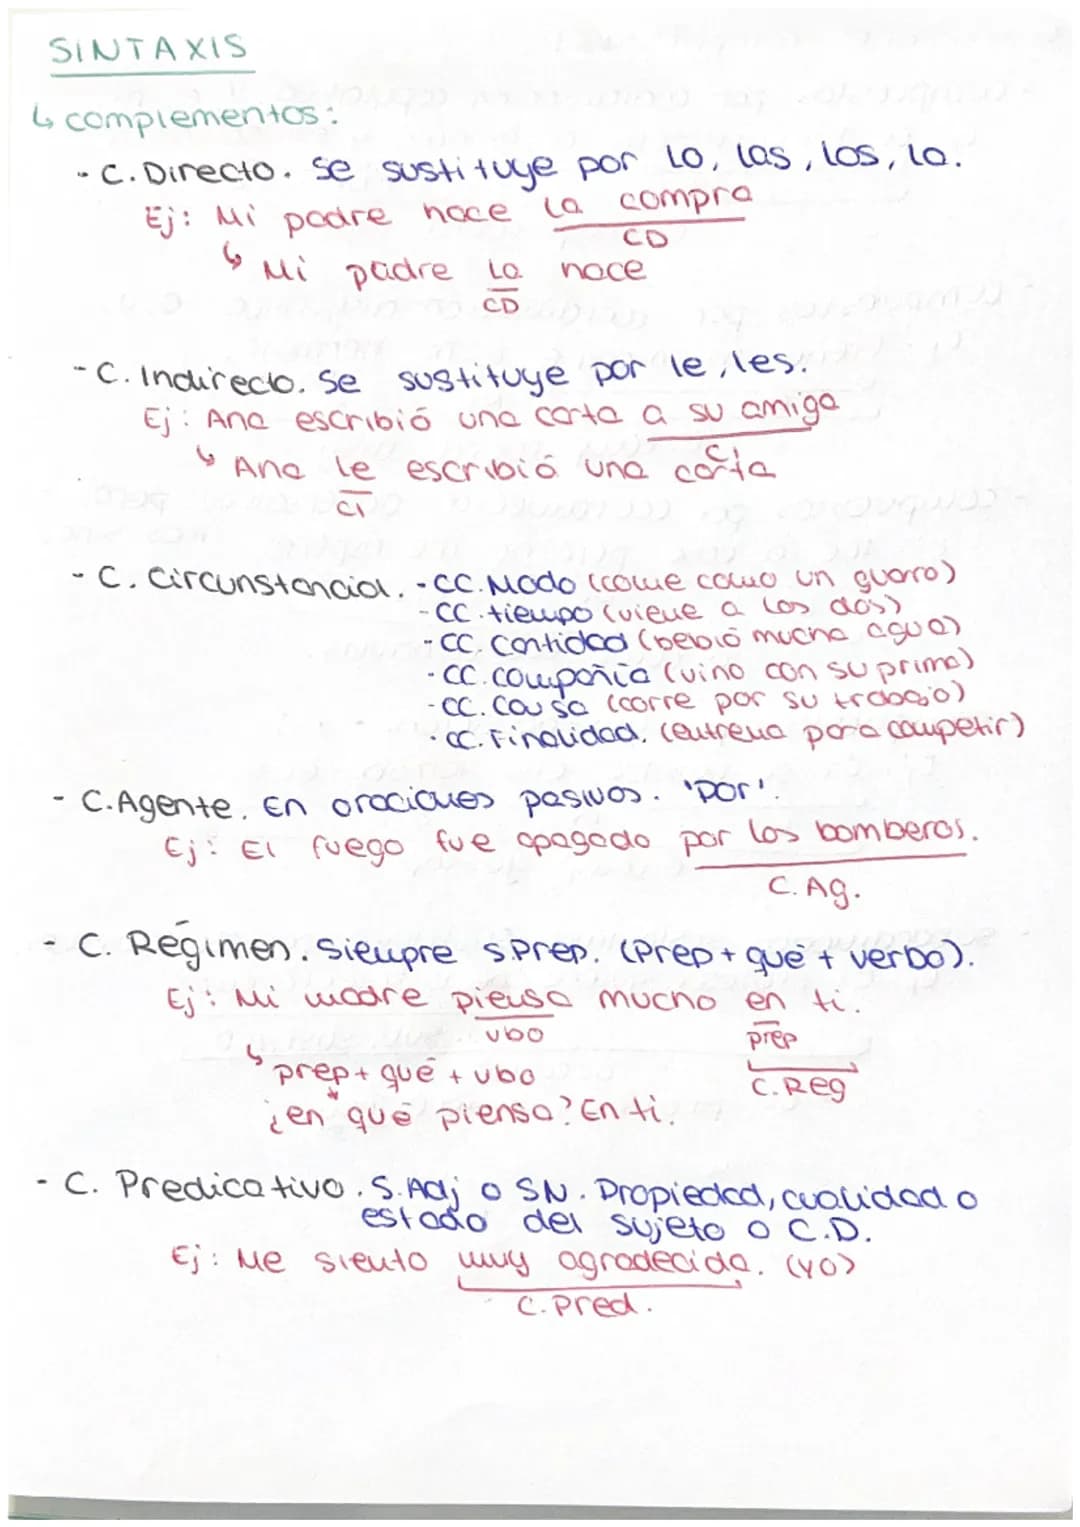 SINTAXIS
↳ complementos:
- C. Directo. Se sustituye por lo, las, los, la.
Ej: Mi padre hace la compra
CD
↳ Mi padre la hace
CD
- C. Indirecto. Se sustituye por le, les.
Ej: Ana escribió una carta a su amiga
CI
↳ Ana le escribió una carta
CI
- C. Circunstancial. - CC. Modo (come como un guarro)
- CC. tiempo (viene a las dos)
- CC. Cantidad (bebió mucha agua)
- CC. compañía (vino con su prima)
- CC. Causa (corre por su trabajo)
- CC. Finalidad. (entrena para competir)
- C. Agente. En oraciones pasivas. 'por'.
Ej: El fuego fue apagado por los bomberos.
C. Ag.
- C. Régimen. Siempre S.Prep. (Prep + qué + verbo).
Ej: Mi madre piensa mucho en ti.
vbo prep
↳ prep + qué + vbo C. Reg
¿en qué piensa? En ti.
- C. Predicativo. S. Adj o SN. Propiedad, cualidad o
estado del sujeto o C.D.
Ej: Me siento muy agradecida. (yo)
C. Pred.